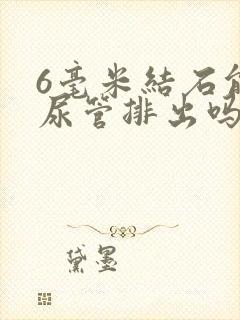 6毫米結石能
尿管排出吗
黛墨